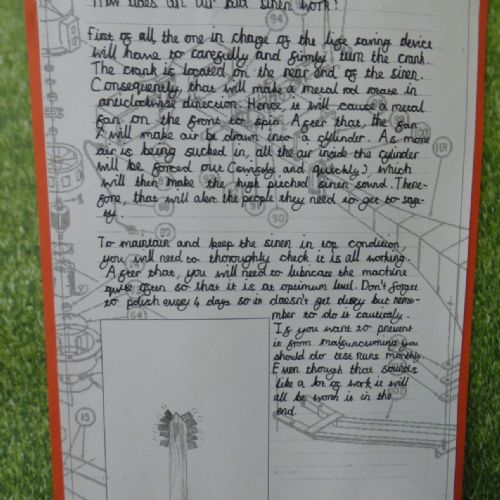 How does an air raid siren work?
First of all the one in charge of the life saving device
will have to carefully and firmly turn the crank.
The crank is located on the rear end of the siren.
Consequently, that will make a metal rod rotate in
anticlockwise direction. Hence, it will cause a metal
fan on the front to spin. After that, the fan
will make air be drawn into a cylinder. As more
air is being sucked in, all the air inside the cylinder
will be forced out (smoothly and quickly), which
will then make the high pitched siren sound. There-
fore, that will alert the people they need to get to safe-
ty.
To maintain and keep the siren in top condition,
you will need to thoroughly check it is all working.
After that, you will need to lubricate the machine
quite often so that it is at optimum level. Don't forget
to polish every 4 days so it doesn't get dusty but reme-
mber to do it cautiously.
If you want to prevent
it from malfunctioning you
should do test runs monthly.
Even though that sounds
like a lot of work it will
all be worth it in the
end.
94
101
98
89
90
64
15